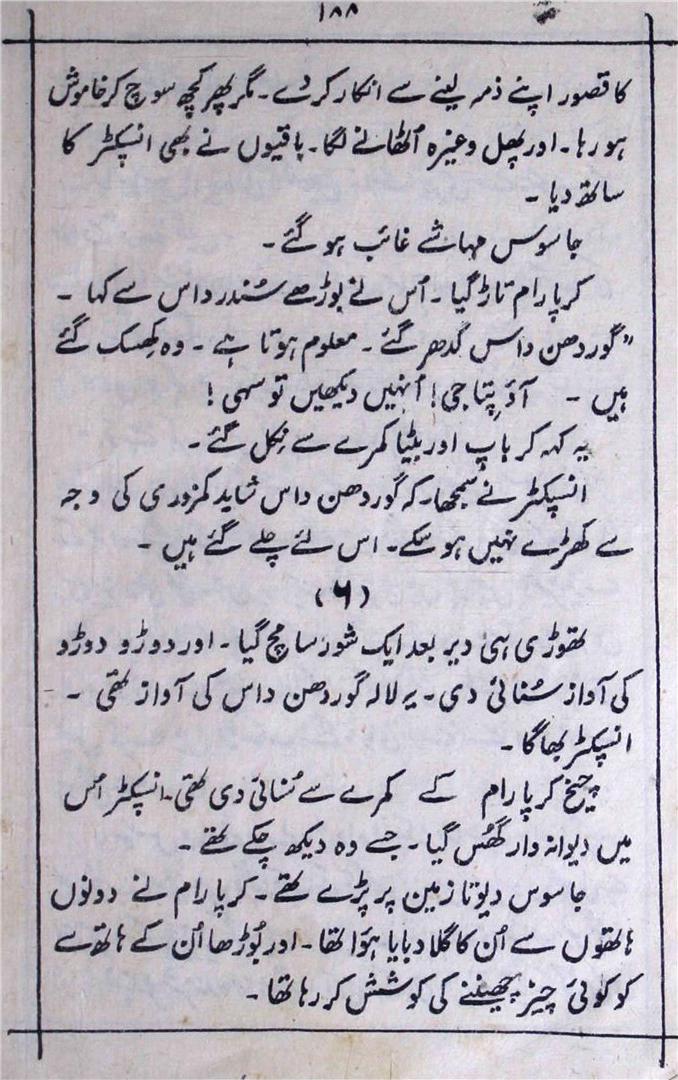 ۱۸۸
کا قصور اپنے ذمہ لینے سے انکار کر دے۔ مگر پھر کچھ سوچ کر خاموش
ہو رہا۔ اور پھل وغیرہ اُٹھانے لگا۔ باقیوں نے بھی انسپکٹر کا
ساتھ دیا۔
جاسوس مہاشے غائب ہو گئے۔
کرپا رام تاڑ گیا۔ اُس نے بوڑھے سُندر داس سے کہا۔
”گوردھن داس کدھر گئے۔ معلوم ہوتا ہے۔ وہ کھِسک گئے
ہیں۔ آؤ پِتا جی! اُنہیں دیکھیں تو سہی!
یہ کہہ کر باپ اور بیٹا کمرے سے نِکل گئے۔
انسپکٹر نے سمجھا۔ کہ گوردھن داس شاید کمزوری کی وجہ
سے کھڑے نہیں ہو سکے۔ اس لئے چلے گئے ہیں۔
(۶)
تھوڑی ہی دیر بعد ایک شور سا مچ گیا۔ اور دوڑو دوڑو
کی آواز سُنائی دی۔ یہ لالہ گوردھن داس کی آواز تھی۔
انسپکٹر بھاگا۔
چیخ کرپا رام کے کمرے سے سُنائی دی تھی۔ انسپکٹر اُس
میں دیوانہ وار گھُس گیا۔ جسے وہ دیکھ چکے تھے۔
جاسوس دیوتا زمین پر پڑے تھے۔ کرپا رام نے دونوں
ہاتھوں سے اُن کا گلا دبایا ہؤا تھا۔ اور بُوڑھا اُن کے ہاتھ سے
کو کوئی چیز چھیننے کی کوشش کر رہا تھا۔